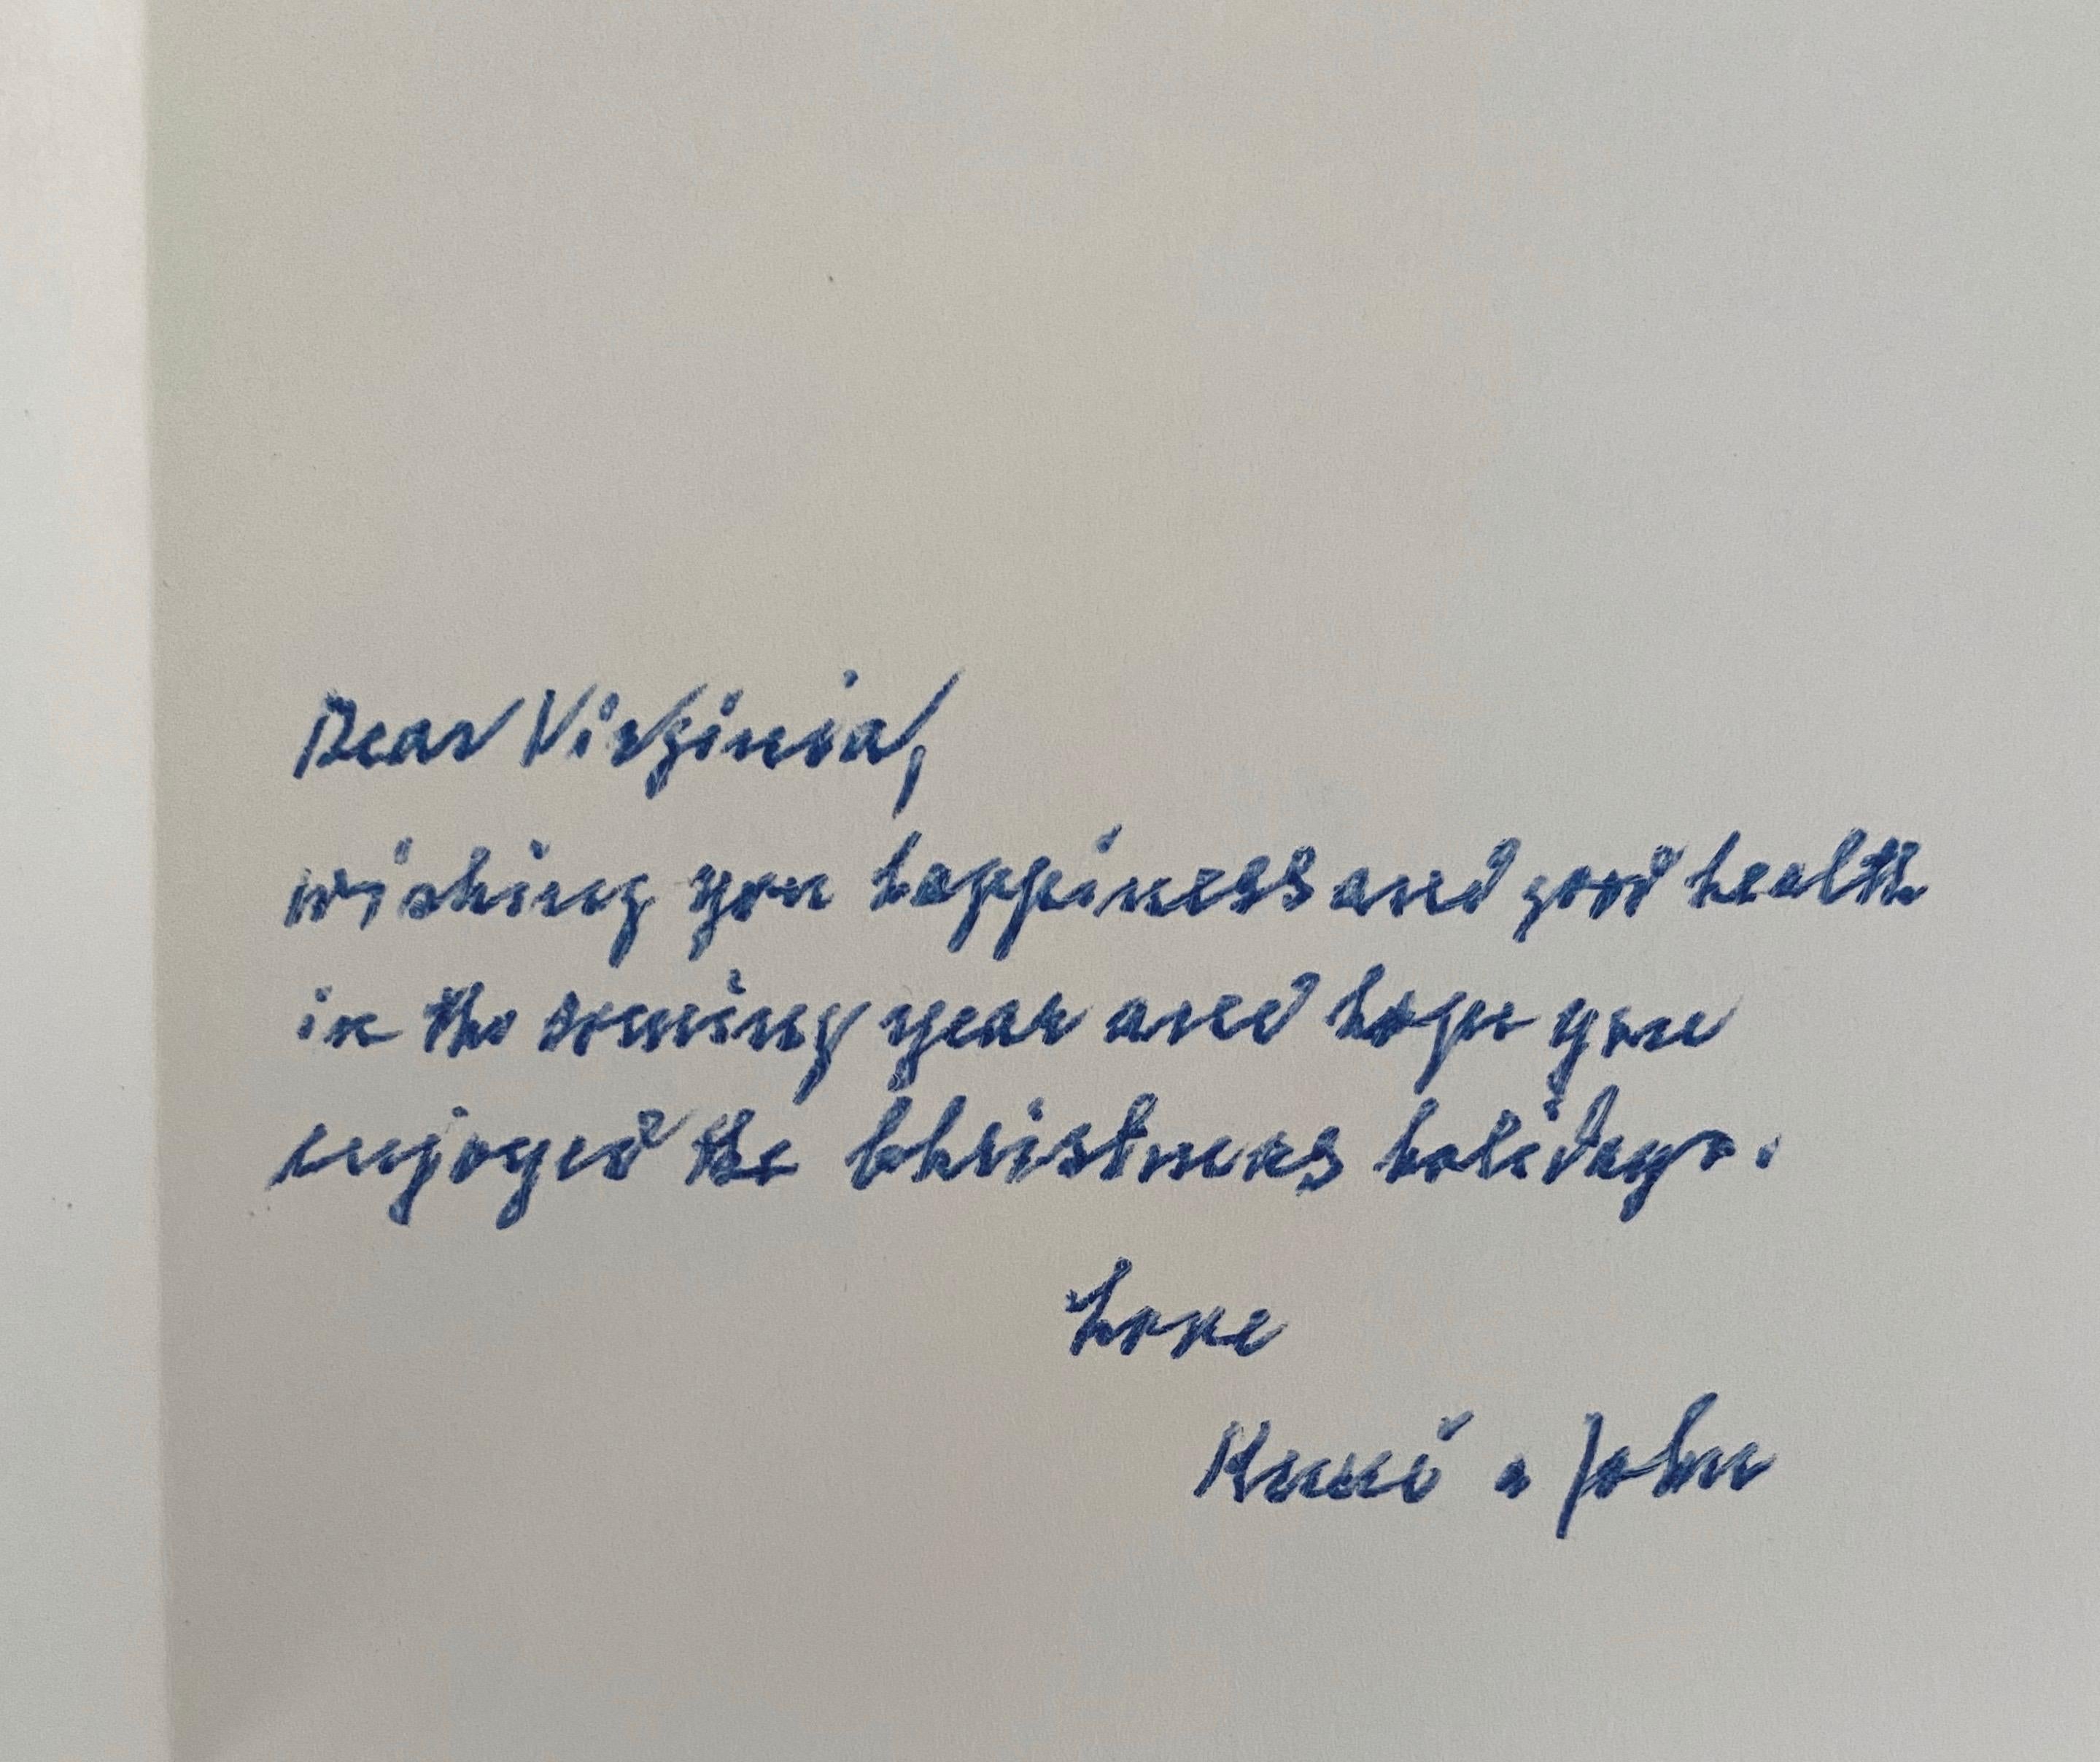 Dear Virginia,
wishing you happiness and good health
in the coming year and hope you
enjoyed the Christmas holidays.
Love
& John